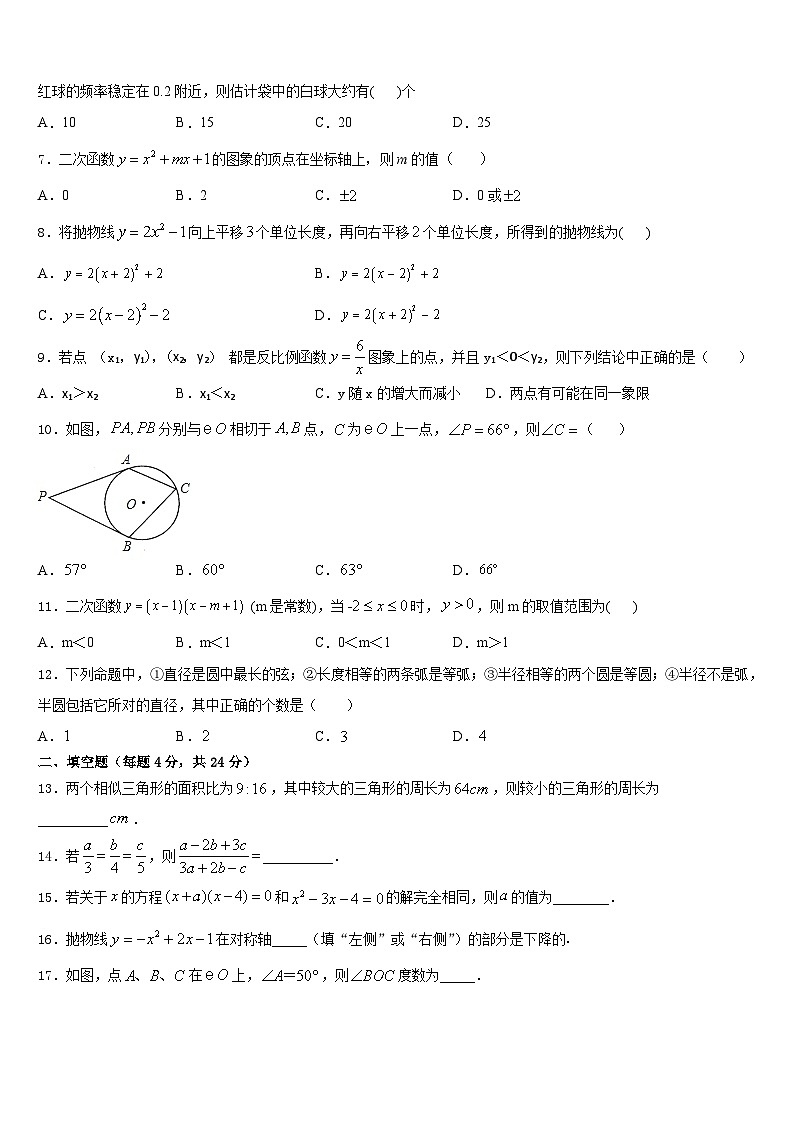 红球的频率稳定在 0.2 附近，则估计袋中的白球大约有(    )个
A．10    B．15    C．20    D．25
7．二次函数 y = x² + mx + 1的图象的顶点在坐标轴上，则 m 的值（    ）
A．0    B．2    C．±2    D．0 或±2
8．将抛物线 y = 2x² − 1向上平移 3 个单位长度，再向右平移 2 个单位长度，所得到的抛物线为(    )
A．y = 2(x + 2)² + 2    B．y = 2(x − 2)² + 2
C．y = 2(x − 2)² − 2    D．y = 2(x + 2)² − 2
9．若点 （x₁，y₁），（x₂，y₂） 都是反比例函数 y = 6/x 图象上的点，并且 y₁＜0＜y₂，则下列结论中正确的是（    ）
A．x₁＞x₂    B．x₁＜x₂    C．y 随 x 的增大而减小    D．两点有可能在同一象限
10．如图，PA, PB 分别与 e O 相切于 A, B 点，C 为 e O 上一点，∠P = 66°，则∠C =（    ）
A
P
C
O
B
A．57°    B．60°    C．63°    D．66°
11．二次函数 y = (x − 1)(x − m + 1) (m 是常数)，当 -2 ≤ x ≤ 0 时，y > 0，则 m 的取值范围为(    )
A．m＜0    B．m＜1    C．0＜m＜1    D．m＞1
12．下列命题中，①直径是圆中最长的弦；②长度相等的两条弧是等弧；③半径相等的两个圆是等圆；④半径不是弧，
半圆包括它所对的直径，其中正确的个数是（    ）
A．1    B．2    C．3    D．4
二、填空题（每题 4 分，共 24 分）
13．两个相似三角形的面积比为 9:16，其中较大的三角形的周长为 64cm，则较小的三角形的周长为
__________cm．
14．若 a/3 = b/4 = c/5，则 (a − 2b + 3c)/(3a + 2b − c) = __________．
15．若关于 x 的方程 (x + a)(x − 4) = 0 和 x² − 3x − 4 = 0 的解完全相同，则 a 的值为________．
16．抛物线 y = −x² + 2x − 1在对称轴_____（填“左侧”或“右侧”）的部分是下降的.
17．如图，点 A、B、C 在 e O 上，∠A＝50°，则∠BOC 度数为_____．